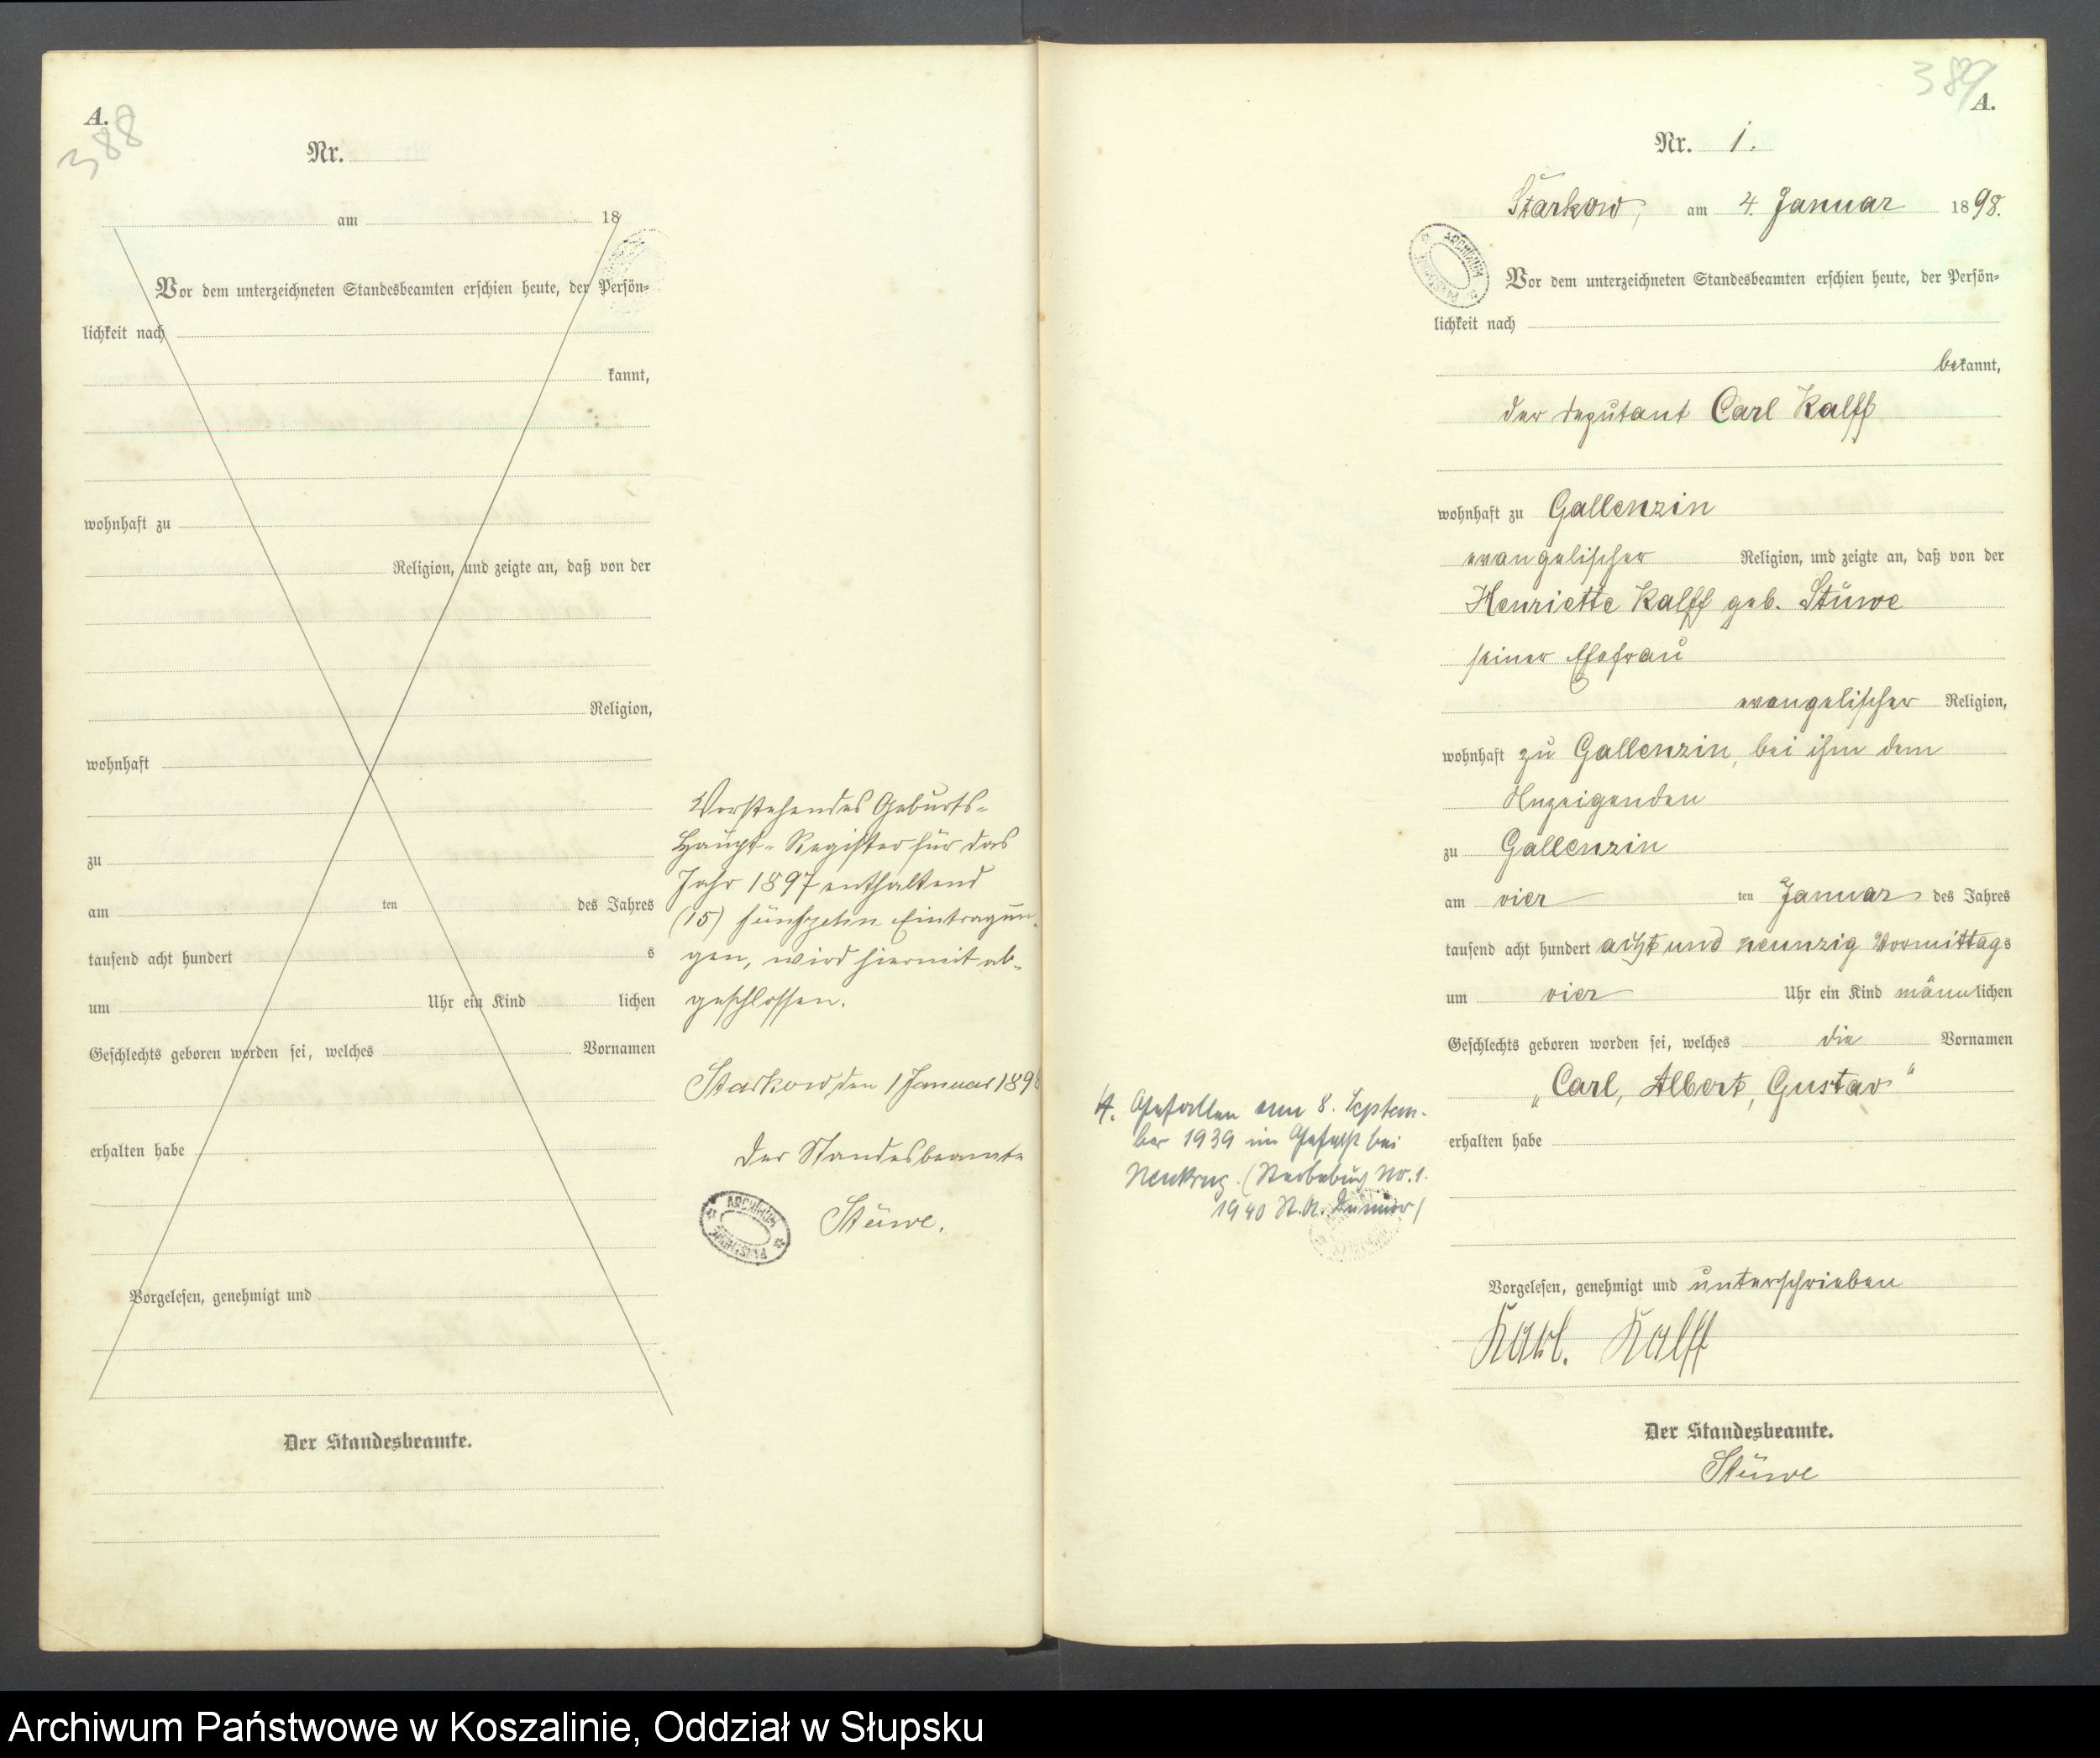 A.
388
Nr.
am 18
Vor dem unterzeichneten Standesbeamten erschien heute, der Persön=
lichkeit nach
kannt,
wohnhaft zu
Religion, und zeigte an, daß von der
Religion,
wohnhaft
zu
am ten des Jahres
tausend acht hundert s
um Uhr ein Kind lichen
Geschlechts geboren worden sei, welches Vornamen
erhalten habe
Vorgelesen, genehmigt und
Der Standesbeamte.
Vorstehendes Geburts-
Haupt-Register für das
Jahr 1897 enthaltend
(15) fünfzehn Eintragun
gen, wird hiermit ab-
geschlossen.
Starkow den 1 Januar 1898
Der Standesbeamte
ARCHIWUM PAŃSTWOWE
Stüwe.
389
A.
Nr. 1.
Starkow, am 4. Januar 1898.
ARCHIWUM PAŃSTWOWE
Vor dem unterzeichneten Standesbeamten erschien heute, der Persön=
lichkeit nach
bekannt,
der Deputant Carl Kalff
wohnhaft zu Gallenzin
evangelischer Religion, und zeigte an, daß von der
Henriette Kalff geb. Stüwe
seiner Ehefrau
evangelischer Religion,
wohnhaft zu Gallenzin, bei ihm dem
Anzeigenden
zu Gallenzin
am vier ten Januar des Jahres
tausend acht hundert acht und neunzig Vormittags
um vier Uhr ein Kind männlichen
Geschlechts geboren worden sei, welches die Vornamen
„Carl, Albert, Gustav"
erhalten habe
Gefallen am 8. Septem-
ber 1939 im Gefecht bei
Neukrug. (Sterbebuch Nr. 1.
1940 St. A.
Vorgelesen, genehmigt und unterschrieben
Karl. Kalff
Der Standesbeamte.
Stüwe
Archiwum Państwowe w Koszalinie, Oddział w Słupsku